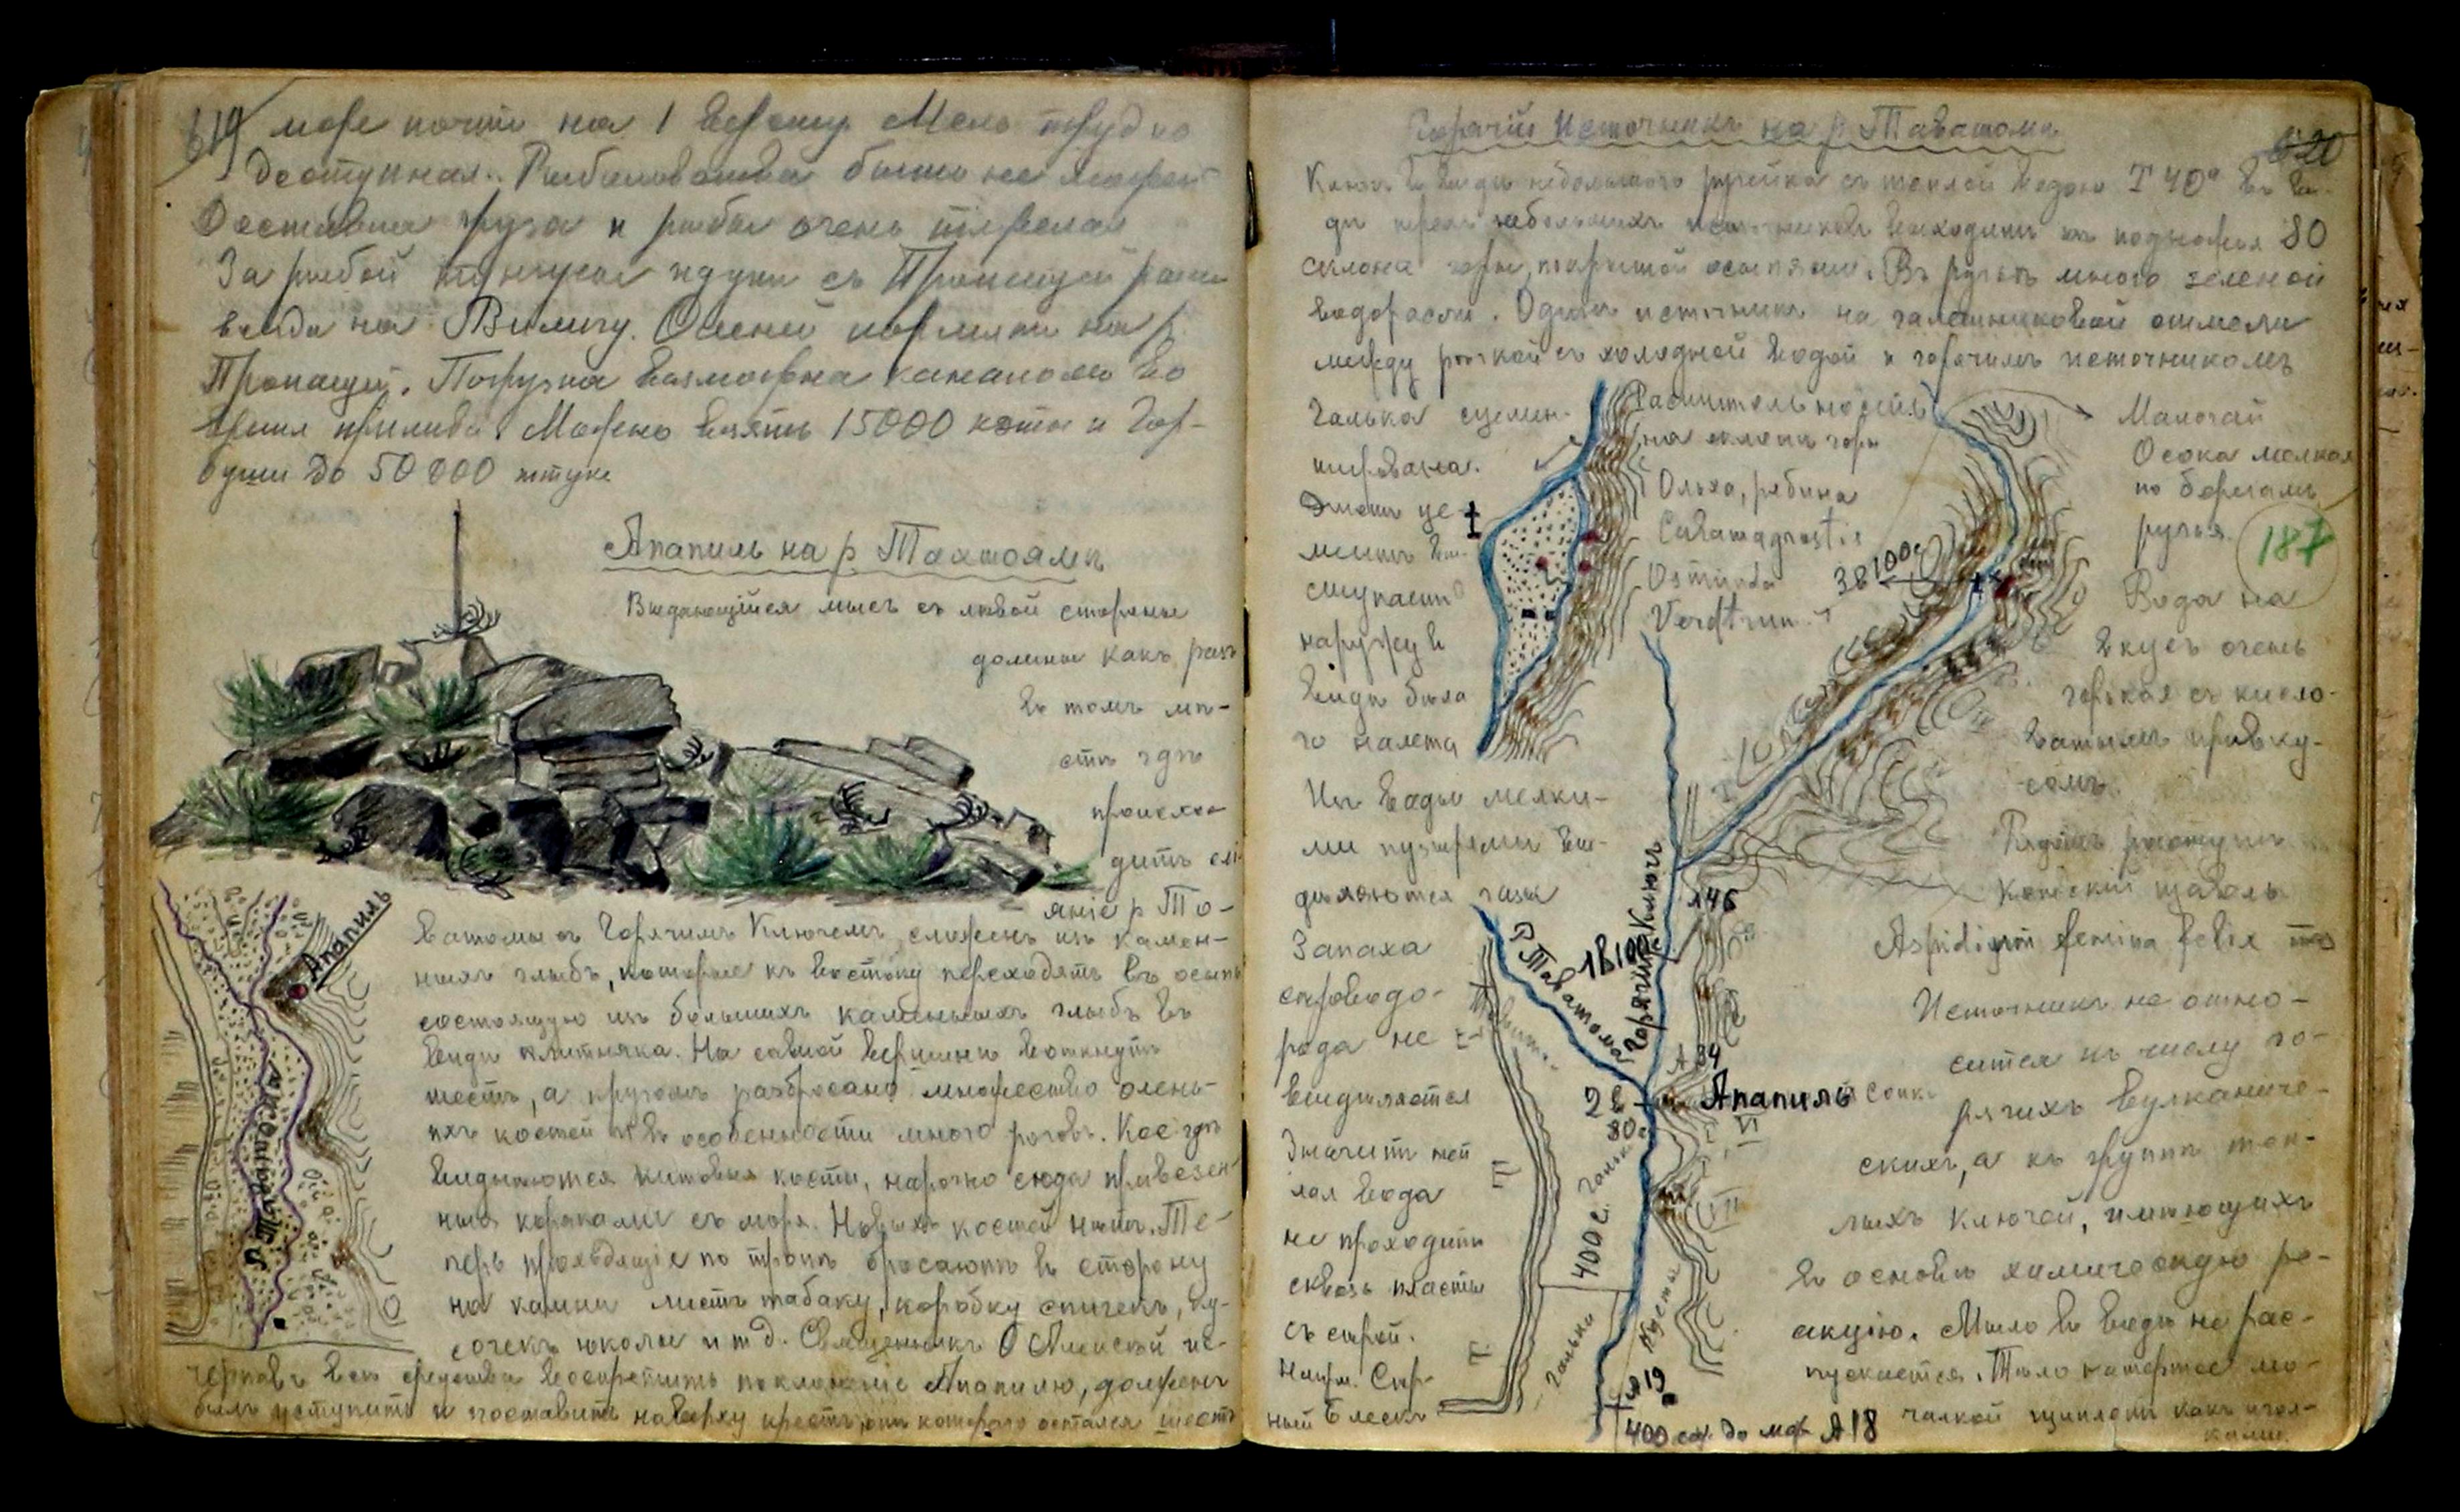 619 море почти на 1 версту. Мель трудно
доступная. Рыболовства быть не может
Доставка груза и рыбы очень тяжелая
За рыбой тунгусы идутъ съ Пропащей
на Вилигу. Осенью на р.
Пропащей. Погрузка возможна канапомъ во
время прилива. Можно взять 15000 кеты и Гор-
буши до 50 000 штукъ
Апапиль на р
Выдающійся мысъ съ лѣвой стороны
долины какъ разъ
въ томъ мѣ-
стѣ гдѣ
происхо-
дитъ слі-
яніе р То-
ватомы съ Горячимъ Ключемъ, сложенъ изъ камен-
ныхъ глыбъ, которые къ востоку переходятъ въ осыпь
состоящую изъ большихъ каменныхъ глыбъ въ
виде плитняка. На самой вершинѣ воткнутъ
шестъ, а кругомъ разбросано множество олень-
ихъ костей и въ особенности много роговъ. Кое гдѣ
виднѣются китовыя кости, нарочно сюда привезен-
ныя коряками съ моря. Новыхъ костей нѣтъ. Те-
перь проѣзжіе по тропѣ бросаютъ въ сторону
на камни листъ табаку, коробку спичекъ, ку-
сочекъ юколы и т д. Священникъ О Алексѣй ис-
черпавъ всѣ средства воспретить поклоненіе Апапилю, долженъ
былъ уступить и поставить наверху крестъ, отъ котораго остался шестъ
Апапиль
Горячій Источникъ на р. Таватомѣ
620
Ключъ въ видѣ небольшого ручейка съ теплой водою T 40° въ ви-
дѣ трехъ небольшихъ источниковъ выходитъ къ подножья 80
склона горы, покрытой осыпями. Въ ручьѣ много зеленой
водоросли. Одинъ источникъ на галечниковой отмели
между рѣчкой съ холодной водой и горячимъ источникомъ
Галька сцемен-
тирована.
Этотъ це-
ментъ вы-
ступаетъ
наружу въ
видѣ бѣла
го налета
Изъ воды мелки-
ми пузырями вы-
дѣляются газы
Запаха
сѣроводо-
рода не
выдѣляется
Значитъ теп
лая вода
не проходитъ
сквозь пласты
съ сѣрой.
Напр. Сѣр-
ный Блескъ
Растительность
на склонѣ горы
Ольха, рябина
Calamagrostis
Osmunda
Veratrum
3В 100с
Малочай
Осока мелкая
по берегамъ
ручья.
187
Вода на
вкусъ очень
горькая съ кисло-
ватымъ привку-
сомъ.
Рядомъ растутъ
Конскій щавель
Aspidium femina felix
Источникъ не отно-
сится къ числу го-
рячихъ вулканиче-
скихъ, а къ группѣ теп-
лыхъ ключей, имѣющихъ
въ основѣ химическую ре-
акцію. Мыло въ водѣ не рас-
пускается. Тѣло натертое мо-
чалкой щиплетъ какъ игол-
ками.
Р. Таватома
Горячій Ключъ
А 46
А 34
2 в
80с
Апапиль Сопк.
VI
VII
Галька
400 с.
Галька
Кусты
А 19
400 саж. до моря А 18